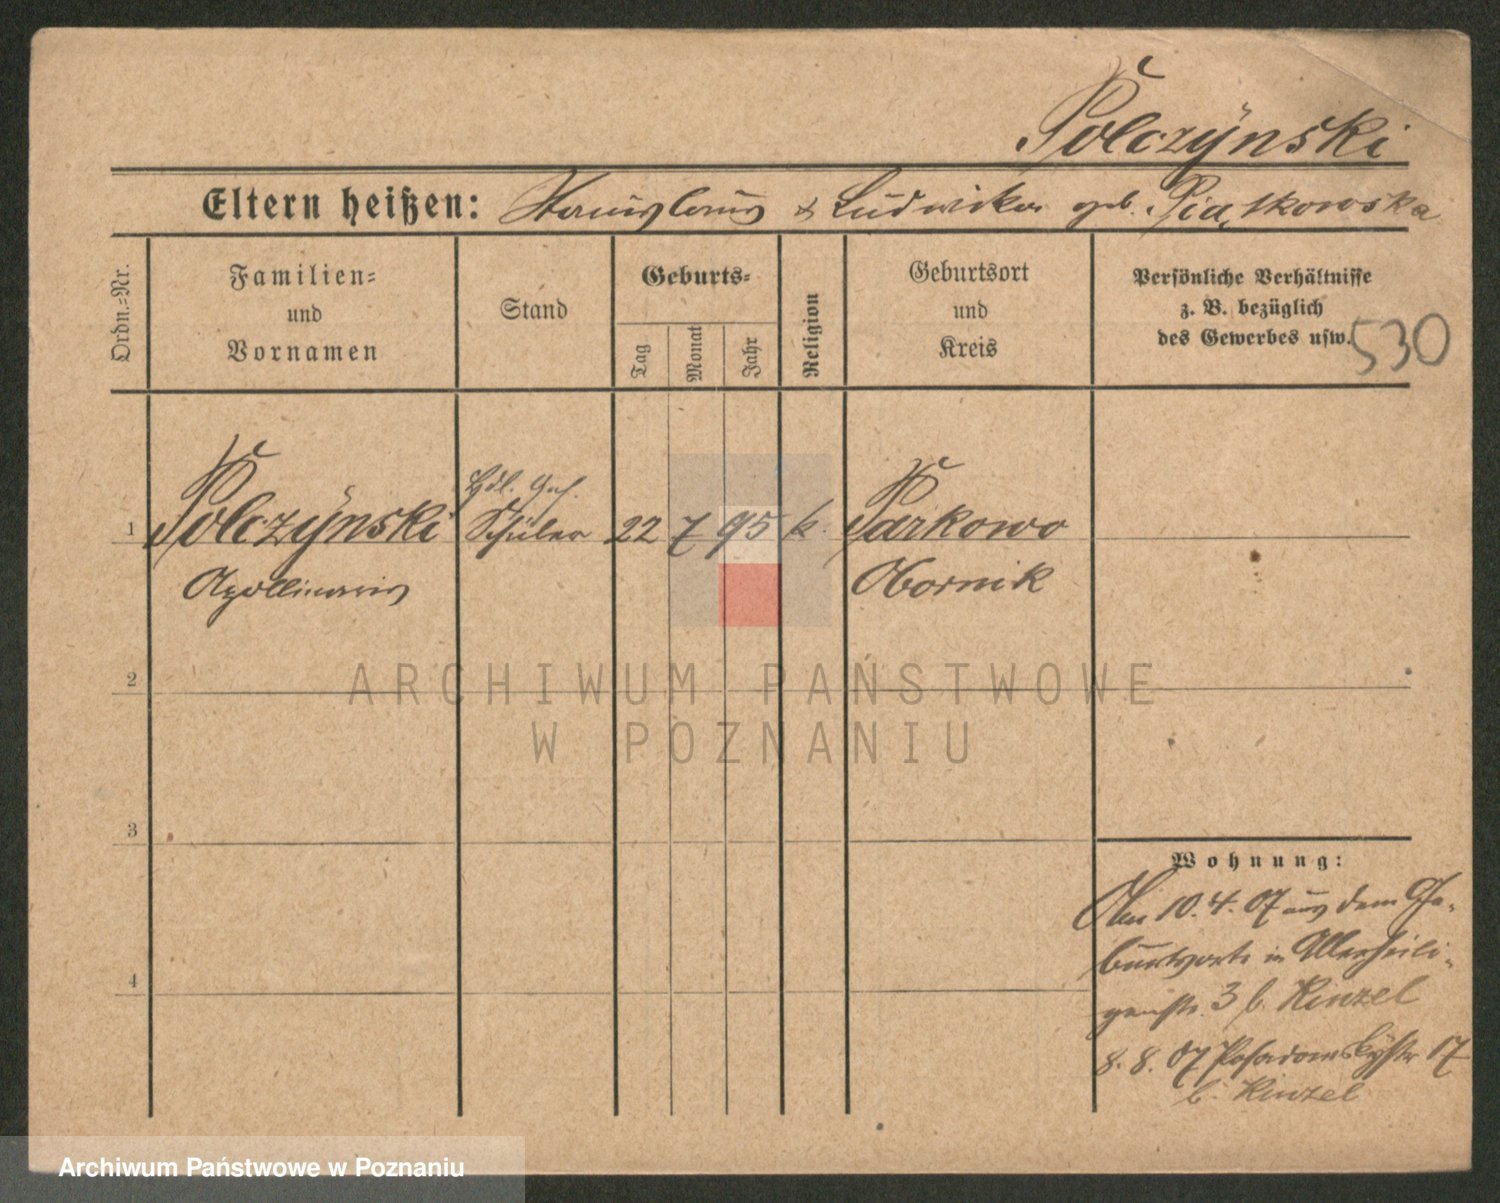 Polczÿnski
Eltern heißen: Stanislaus & Ludwika geb. Piątkowska
Ordn.-Nr.
Familien-
und
Vornamen
Stand
Geburts-
Tag
Monat
Jahr
Religion
Geburtsort
und
Kreis
Persönliche Verhältnisse
z. B. bezüglich
des Gewerbes usw.
530
Hdl. Geh.
1 Polczÿnski Schüler 22 7 95 k. Parkowo
Apollinaris Obornik
2
3
4
Wohnung:
Am 10.4.07 aus dem Ge-
burtsorte in Allerheili-
genstr. 3 b. Kinzel
8.8.07 Posadowskystr 17
b. Kinzel
ARCHIWUM PAŃSTWOWE
W POZNANIU
Archiwum Państwowe w Poznaniu